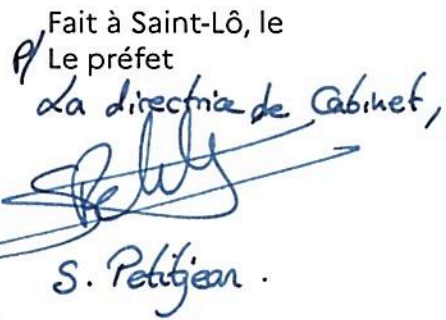 Fait à Saint-Lô, le
P/ Le préfet
La directrice de Cabinet,
S. Petitjean.